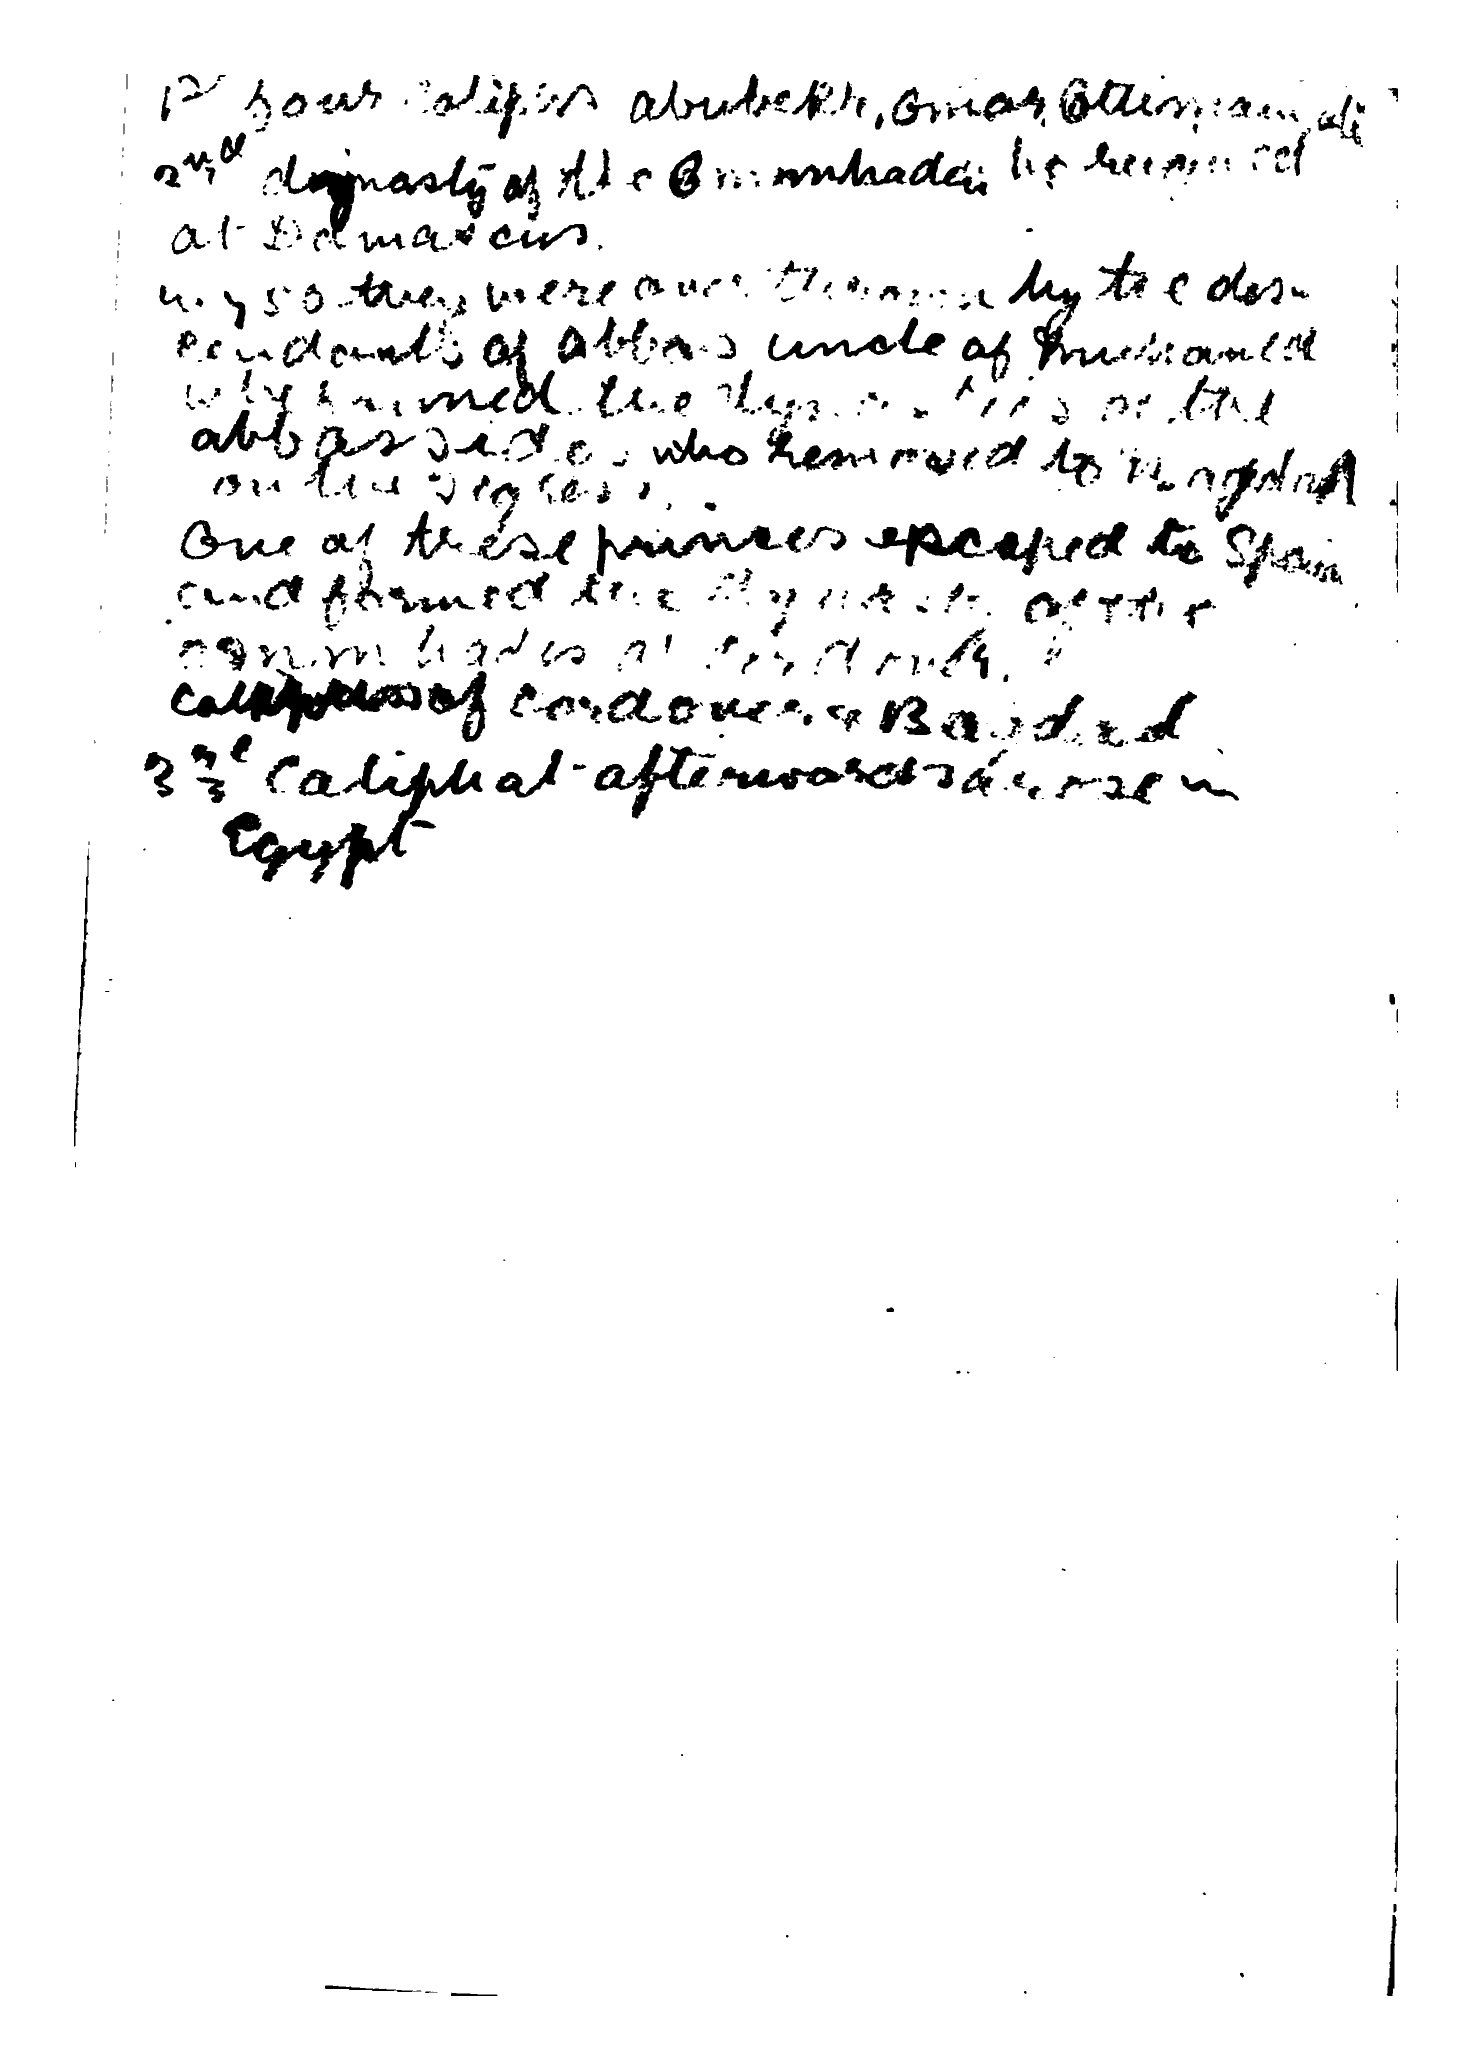 1st four Caliphs abubekr, Omar, Ottoman, ali
2nd dynasty of the Ommrhades he reigned
at Damascus.
in 750 they were over thrown by the des-
cendants of Abbas uncle of Muhamed
why formed the dynasties or the
abbassides who removed to Bagdad
on the Tigres.
One of these princes escaped to Spain
and formed the dynasty of the
ommhades at Cordova.
Caliphas of Cordova & Bagdad
3rd Caliphat afterwards arose in
Egypt